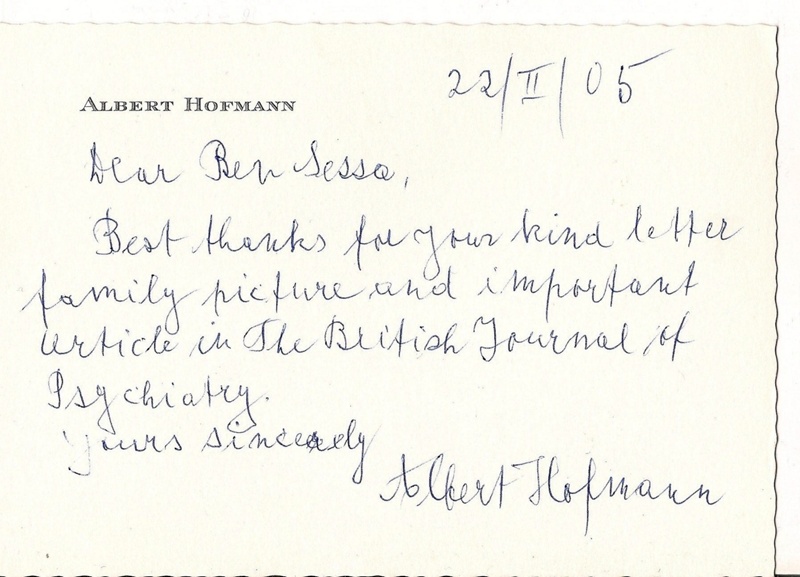 ALBERT HOFMANN
22/II/05
Dear Ben Sessa,
Best thanks for your kind letter
family picture and important
article in The British Journal of
Psychiatry.
Yours sincerely
Albert Hofmann